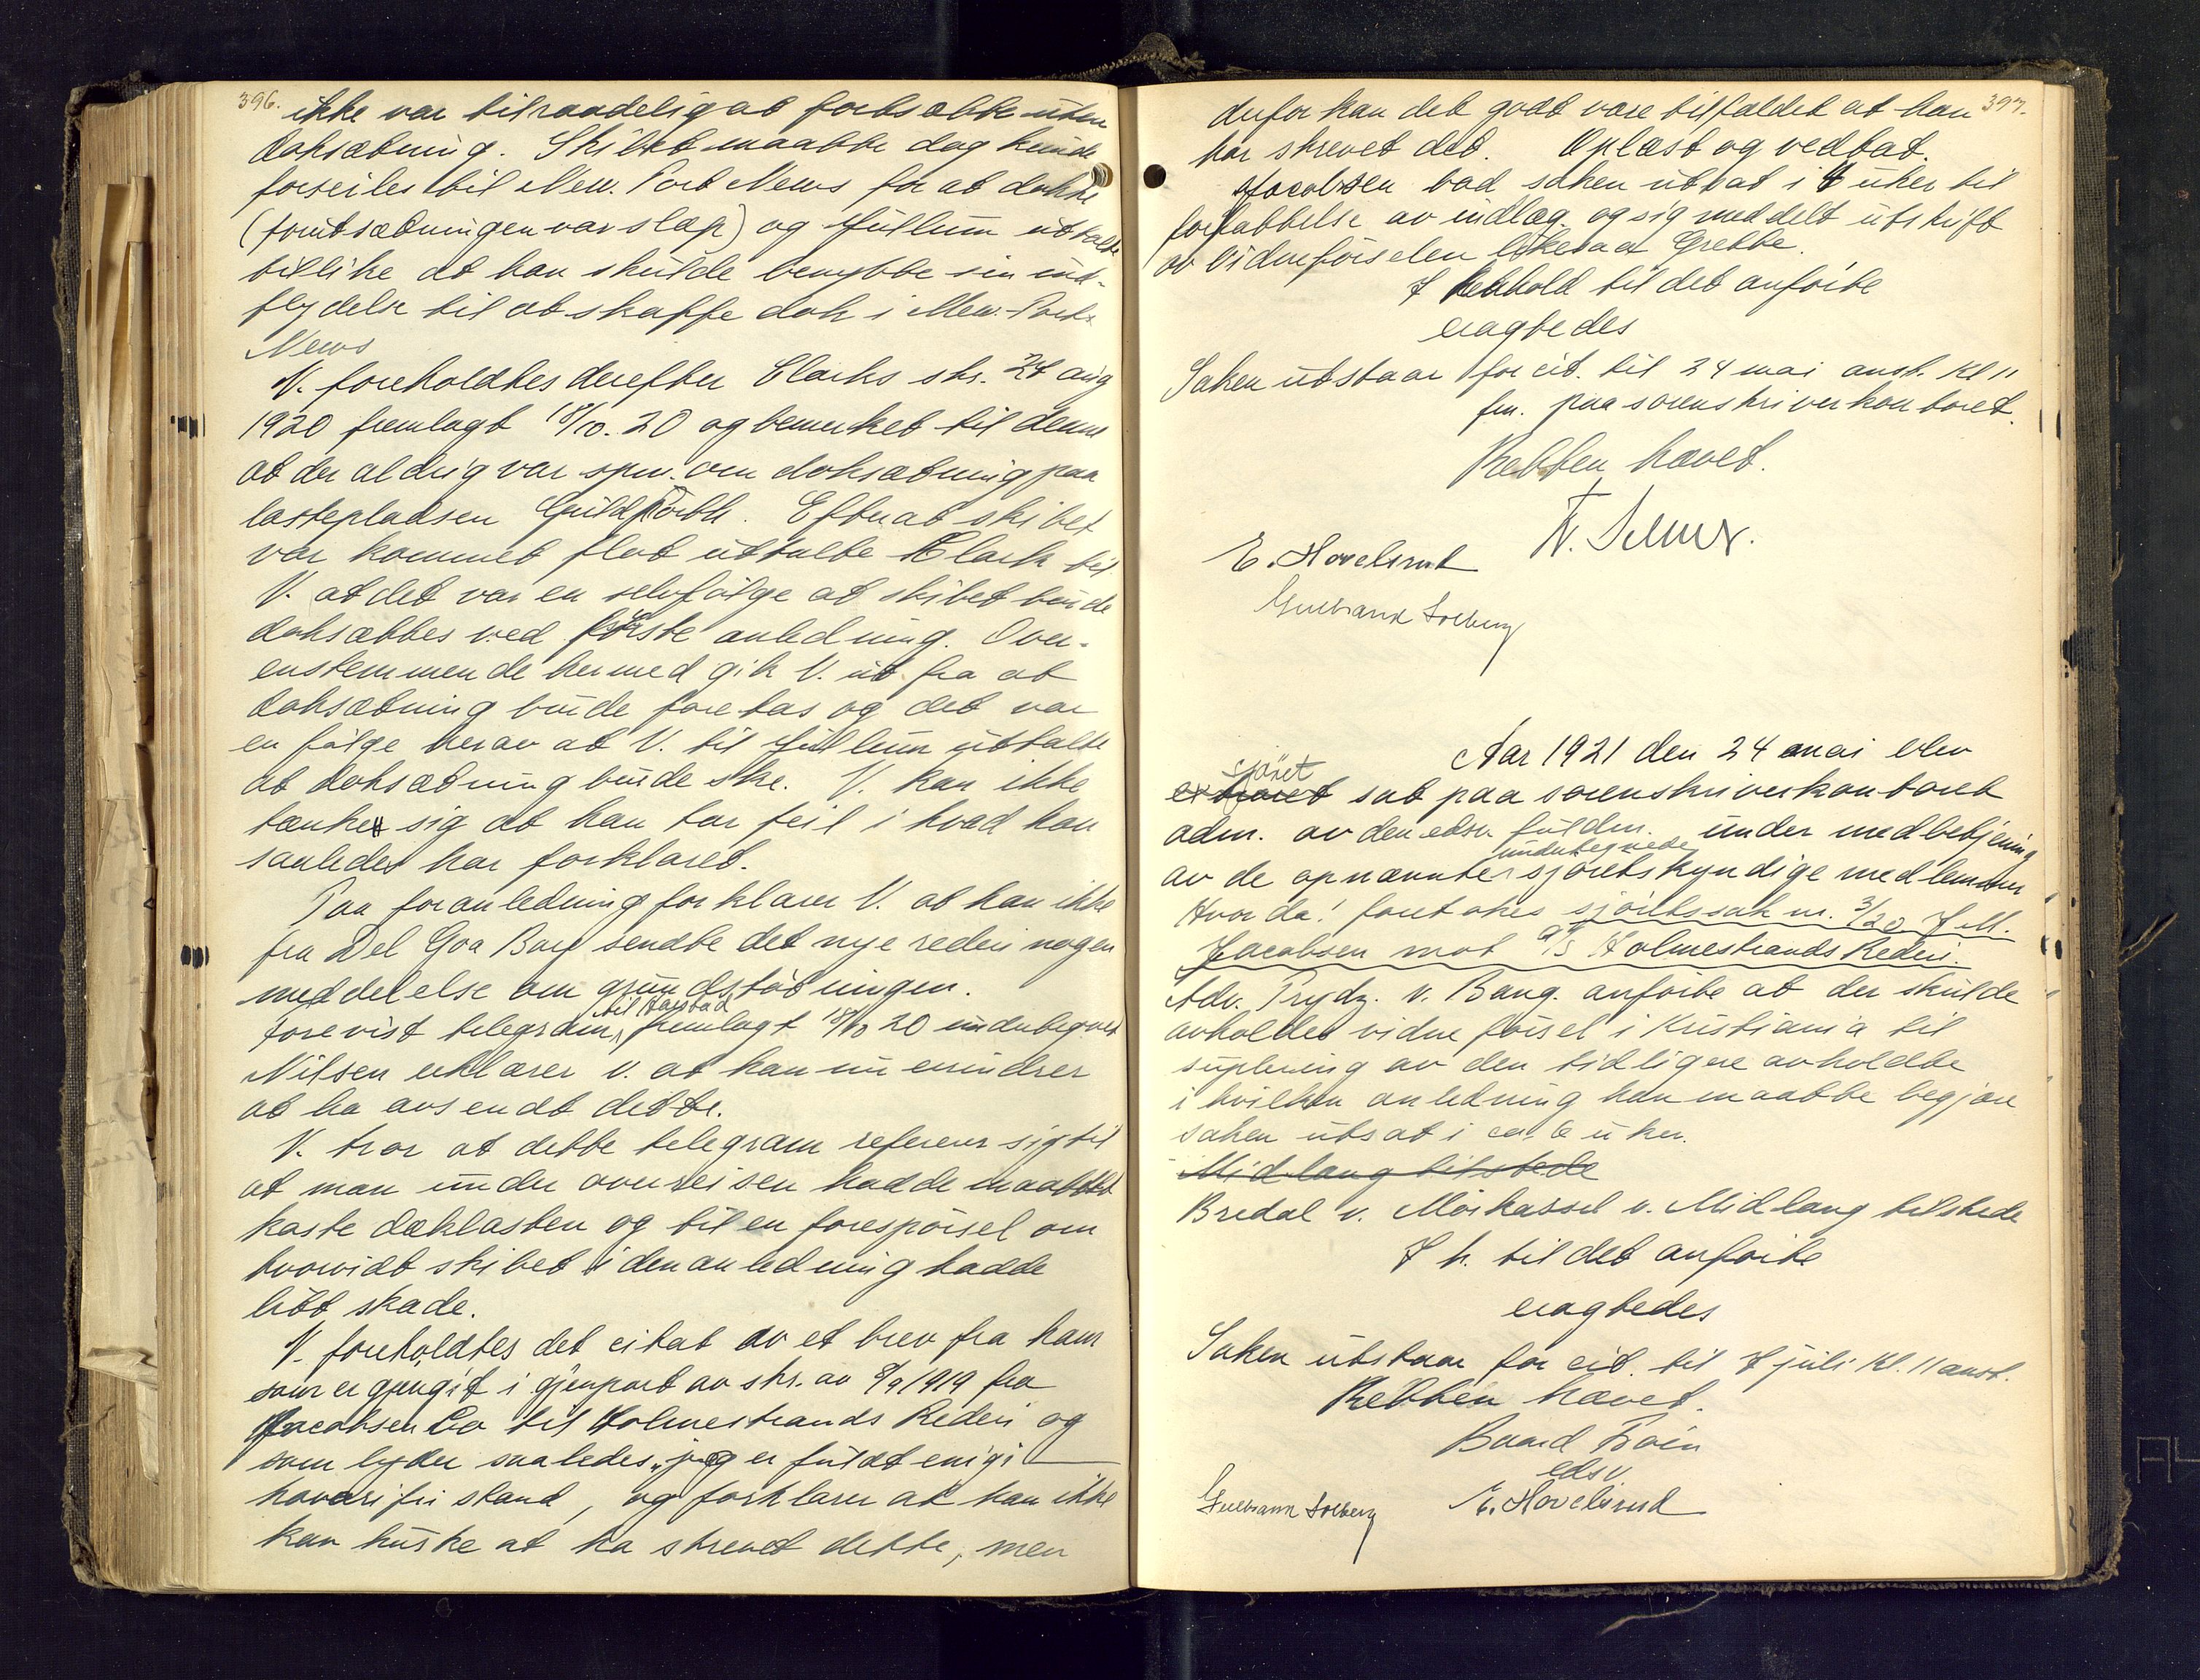 396.
ikke var tilraadelig at fortsætte uten
doksætning. Skibet maatte dog kunde
forseiles til New. Port News for at dokke
(forutsætningen var slæp) og Jullum uttalte
tillike at han skulde benytte sin ind-
flydelse til at skaffe dok i New-Port-
News
V. foreholdtes derefter Clarks skr. 24 aug
1920 fremlagt 18/10.20 og bemerket til denne
at der aldrig var spm. om doksætning paa
lastepladsen Guldfporth. Efterat skibet
var kommet flot uttalte Clark til
V. at det var en selvfølge at skibet burde
doksættes ved første anledning. Over-
enstemmende hermed gik V. ut fra at
doksætning burde foretas og det var
en følge herav at V. til Jullum uttalte
at doksætning burde ske. V. kan ikke
tænke sig at han tar feil i hvad han
saaledes har forklaret.
Paa foranledning forklarer V. at han ikke
fra Del Goa Bay sendte det nye rederi nogen
meddelelse om grundstøtningen.
Forevist telegram til Harstad fremlagt 18/10 20 undertegnet
Nilsen erklærer v. at han nu erindrer
at ha avsendt dette.
V. tror at dette telegram referers sig til
at man under overreisen hadde maattet
kaste dækslasten og til en forespørsel om
hvorvidt skibet i den anledning hadde
lidt skade.
V. foreholdtes det citat av et brev fra ham
som er gjengit i gjenpart av skr. av 8/9 1919 fra
Jacobsen Co til Holmestrands Rederi og
som lyder saaledes „jeg er fuldt enig i
havarifri stand, og forklarer at han ikke
kan huske at ha skrevet dette, men
397.
derfor kan det godt være tilfældet at han
har skrevet det. Oplæst og vedtat.
Jacobsen bad saken utsat i 4 uker til
forfattelse av indlæg og sig meddelt utskrift
av vidneførselen likesaa Grette.
I henhold til det anførte
eragtedes
Saken utstaar for cit. til 24 mai anst. kl 11
fm. paa sorenskriverkontoret.
Retten hævet.
E. Hovelsrud
Gulbrand Solberg
Aar 1921 den 24 mai blev
sjøret
sat paa sorenskriverkontoret
adm. av den edsv. fuldm. under medbetjening
undertegnede
av de opnævnte sjøretskyndige medlemmer
Hvor da! foretokes sjøretssak nr. 3/20 J.M.
Jacobsen mot A/S Holmestrands Rederi.
Adv. Trydz. v. Bang. anførte at der skulde
avholdes vidneførsel i Kristiania til
suplering av den tidligere avholdte
i hvilken anledning han maatte begjære
saken utsat i ca. 6 uker.
Midlang tilstede
Bredal v. Mørkassel v. Midlang tilstede
I h. til det anførte
eragtedes
Saken utstaar for cit. til 7 juli kl. 11 anst.
Retten hævet.
edsv.
Gulbrand Solberg E. Hovelsrud